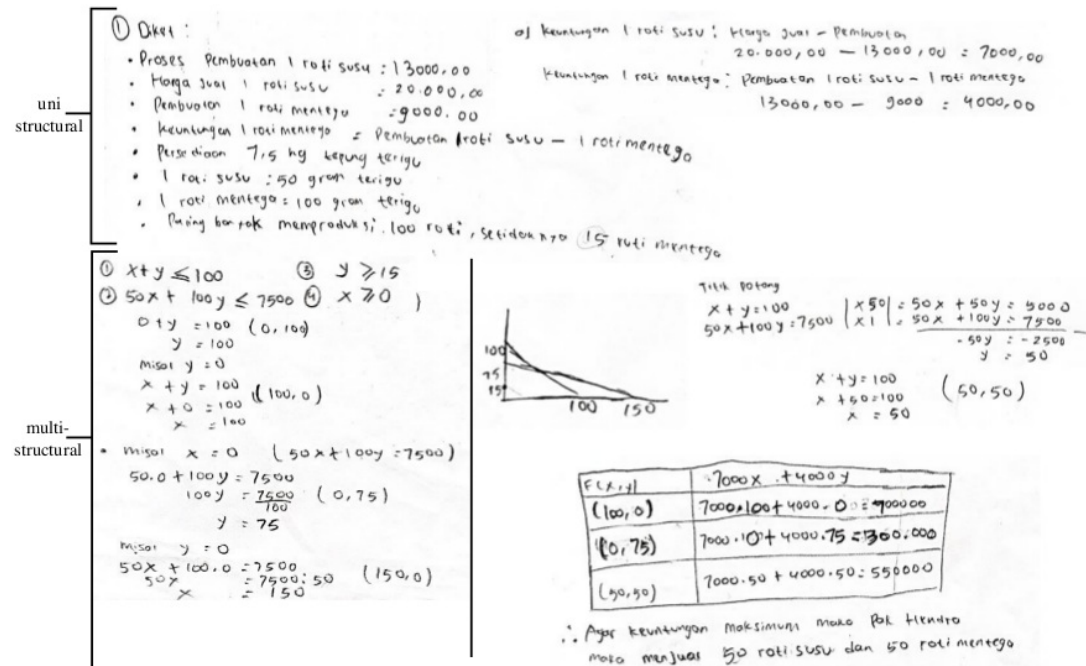 uni
structural
① Diket :
• Proses Pembuatan 1 roti susu : 13000,00
• Harga jual 1 roti susu : 20.000,00
• Pembuatan 1 roti mentega : 9000.00
• Keuntungan 1 roti mentega = Pembuatan 1 roti susu - 1 roti mentega
• Persediaan 7,5 kg tepung terigu
• 1 roti susu : 50 gram terigu
• 1 roti mentega = 100 gram terigu
• Paling banyak memproduksi 100 roti, setidaknya 15 roti mentega
a) Keuntungan 1 roti susu : Harga jual - Pembuatan
20.000,00 - 13000,00 = 7000,00
Keuntungan 1 roti mentega : Pembuatan 1 roti susu - 1 roti mentega
13000,00 - 9000 = 4000,00
multi-
structural
① x+y ≤ 100 ③ y ≥ 15
② 50x + 100y ≤ 7500 ④ x ≥ 0
0+y = 100 (0,100)
y = 100
misal y = 0
x + y = 100
x + 0 = 100 (100,0)
x = 100
• misal x = 0 (50x+100y = 7500)
50.0 + 100y = 7500
100y = 7500/100 (0,75)
y = 75
misal y = 0
50x + 100.0 = 7500
50x = 7500:50 (150,0)
x = 150
100
75
15
100 150
Titik potong
x + y = 100 |x50| = 50x + 50y = 5000
50x+100y = 7500 |x1| = 50x + 100y = 7500
-50y = -2500
y = 50
x + y = 100
x + 50 = 100 (50,50)
x = 50
F(x,y) 7000x + 4000y
(100,0) 7000.100 + 4000.0 = 700000
(0,75) 7000.10 + 4000.75 = 300.000
(50,50) 7000.50 + 4000.50 = 550000
∴ Agar keuntungan maksimum maka Pak Hendra
maka menjual 50 roti susu dan 50 roti mentega